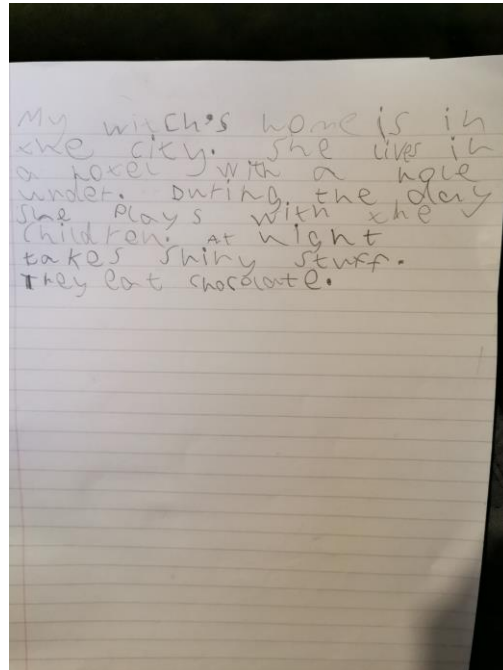 My witch's home is in
the city. She lives in
a hotel with a hole
under. During the day
She Plays with the
Children. At night
takes shiny stuff.
They eat chocolate.